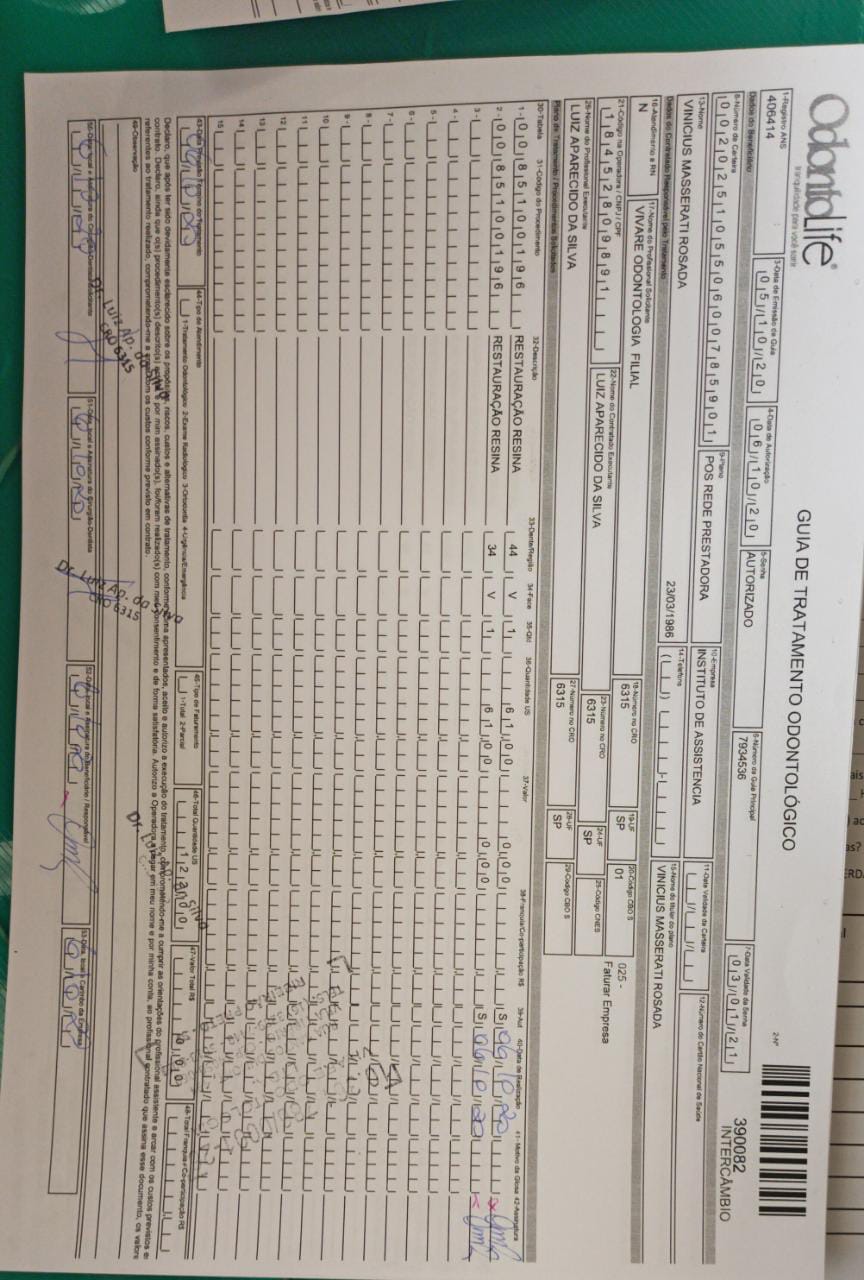 OdontoLife®
tranquilidade para você sorrir
GUIA DE TRATAMENTO ODONTOLÓGICO
2-Nº
390082
INTERCÂMBIO
1-Registro ANS
406414
3-Data de Emissão da Guia
05/10/20
4-Data de Autorização
06/10/20
5-Senha
AUTORIZADO
6-Número da Guia Principal
7934536
7-Data Validade da Senha
03/01/21
Dados do Beneficiário
8-Número da Carteira
00202510550600785901
9-Plano
POS REDE PRESTADORA
10-Empresa
INSTITUTO DE ASSISTENCIA
11-Data Validade da Carteira
12-Número do Cartão Nacional de Saúde
13-Nome
VINICIUS MASSERATI ROSADA
23/03/1986
14-Telefone
15-Nome do titular do plano
VINICIUS MASSERATI ROSADA
Dados do Contratado Responsável pelo Tratamento
16-Atendimento a RN
N
17-Nome do Profissional Solicitante
VIVARE ODONTOLOGIA FILIAL
18-Número no CRO
6315
19-UF
SP
20-Código CBO S
01
025 -
Faturar Empresa
21-Código na Operadora / CNPJ / CPF
18452809891
22-Nome do Contratado Executante
LUIZ APARECIDO DA SILVA
23-Número no CRO
6315
24-UF
SP
25-Código CNES
26-Nome do Profissional Executante
LUIZ APARECIDO DA SILVA
27-Número no CRO
6315
28-UF
SP
29-Código CBO S
Plano de Tratamento / Procedimentos Solicitados
30-Tabela 31-Código do Procedimento 32-Descrição 33-Dente/Região 34-Face 35-Qtd 36-Quantidade US 37-Valor 38-Franquia/Co-participação R$ 39-Aut 40-Data de Realização 41- Motivo da Glosa 42-Assinatura
1- 00 85100196 RESTAURAÇÃO RESINA 44 V 1 61,00 0,00 S 06/10/20
2- 00 85100196 RESTAURAÇÃO RESINA 34 V 1 61,00 0,00 S 06/10/20
3-
4-
5-
6-
7-
8-
9-
10
11
12
13
14
15
44-Tipo de Atendimento
1-Tratamento Odontológico 2-Exame Radiológico 3-Ortodontia 4-Urgência/Emergência
45-Tipo de Faturamento
1-Total 2-Parcial
46-Total Quantidade US
122,00
47-Valor Total R$
0,00
48-Total Franquia / Co-participação R$
Declaro, que após ter sido devidamente esclarecido sobre os propósitos, riscos, custos e alternativas de tratamento, conforme acima apresentados, aceito e autorizo a execução do tratamento, comprometendo-me a cumprir as orientações do profissional assistente e arcar com os custos previstos em
contrato. Declaro, ainda que o(s) procedimento(s) descrito(s) e por mim assinado(s), foi/foram realizado(s) com meu consentimento e de forma satisfatória. Autorizo a Operadora a pagar em meu nome e por minha conta, ao profissional contratado que assina esse documento, os valores
referentes ao tratamento realizado, comprometendo-me a arcar com os custos conforme previsto em contrato.
49-Observação
Dr. Luiz Ap. da Silva
CRO 6315
Dr. Luiz Ap. da Silva
CRO 6315